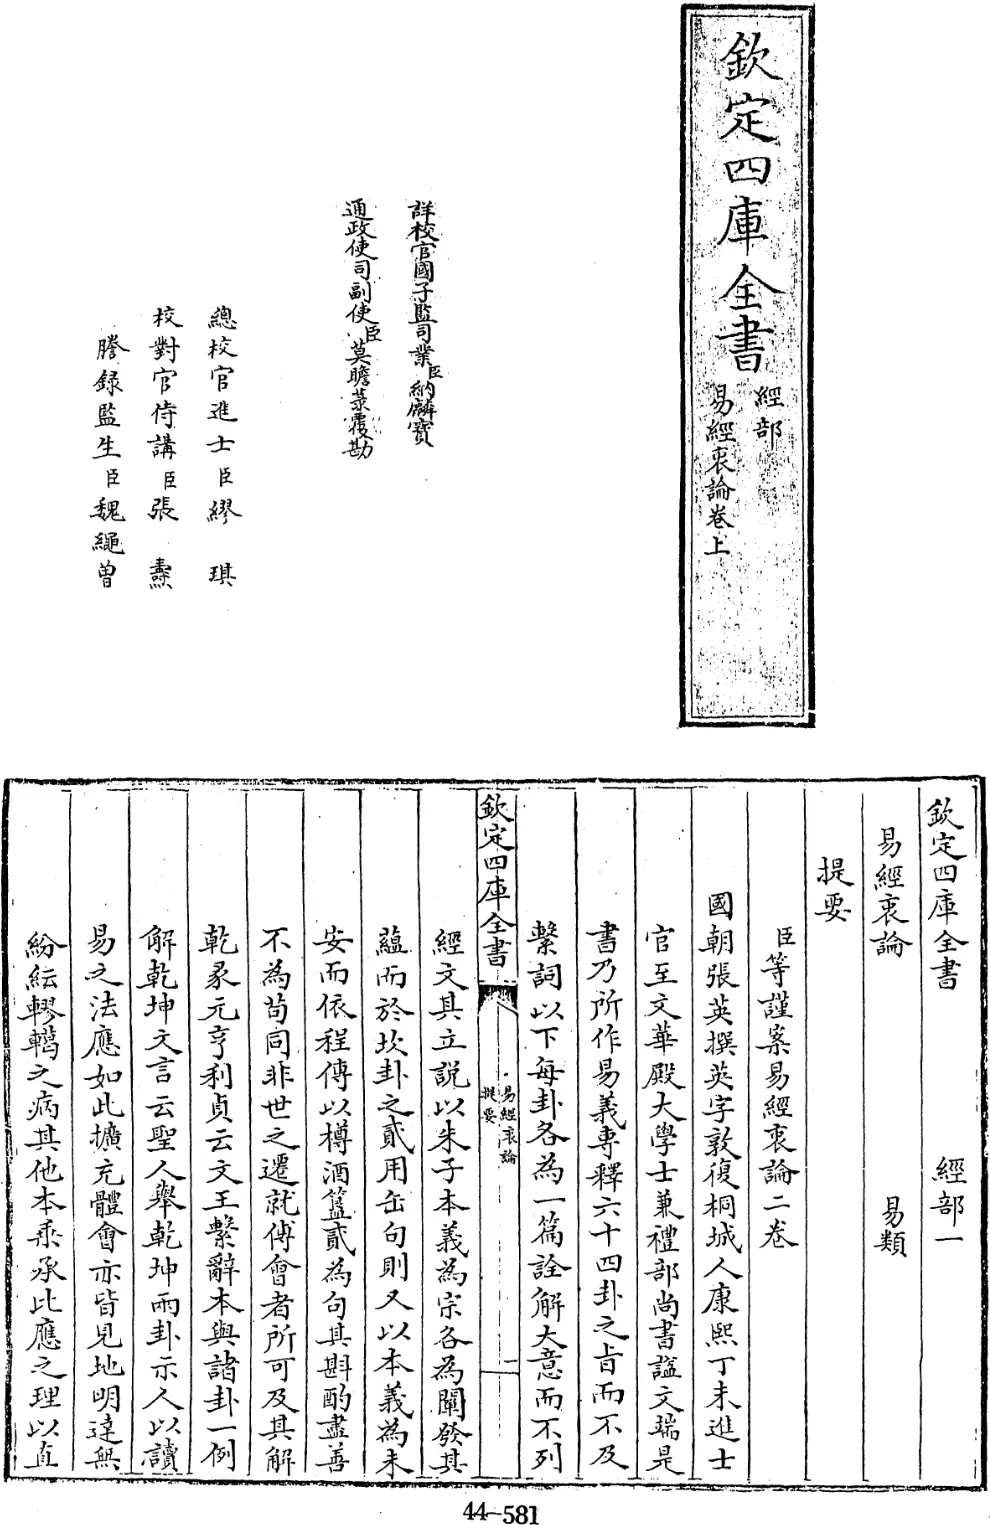 欽定四庫全書
經部
易經衷論卷上
詳校官國子監司業臣納麟寶
通政使司副使臣莫瞻菉覆勘
總校官進士臣繆琪
校對官侍講臣張燾
謄録監生臣魏繩曾
欽定四庫全書 經部一
易經衷論 易類
提要
臣等謹案易經衷論二卷
國朝張英撰英字敦復桐城人康熙丁未進士
官至文華殿大學士兼禮部尚書諡文端是
書乃所作易義專釋六十四卦之旨而不及
繫詞以下每卦各為一篇詮解大意而不列
欽定四庫全書
易經衷論
提要
一
經文其立説以朱子本義為宗各為闡發其
蘊而於坎卦之貳用缶句則又以本義為未
安而依程傳以樽酒簋貳為句其斟酌盡善
不為苟同非世之遷就傅會者所可及其解
乾彖元亨利貞云文王繫辭本與諸卦一例
解乾坤文言云聖人舉乾坤兩卦示人以讀
易之法應如此擴充體會亦皆見地明達無
紛紜轇轕之病其他本乘承比應之理以直
44-581